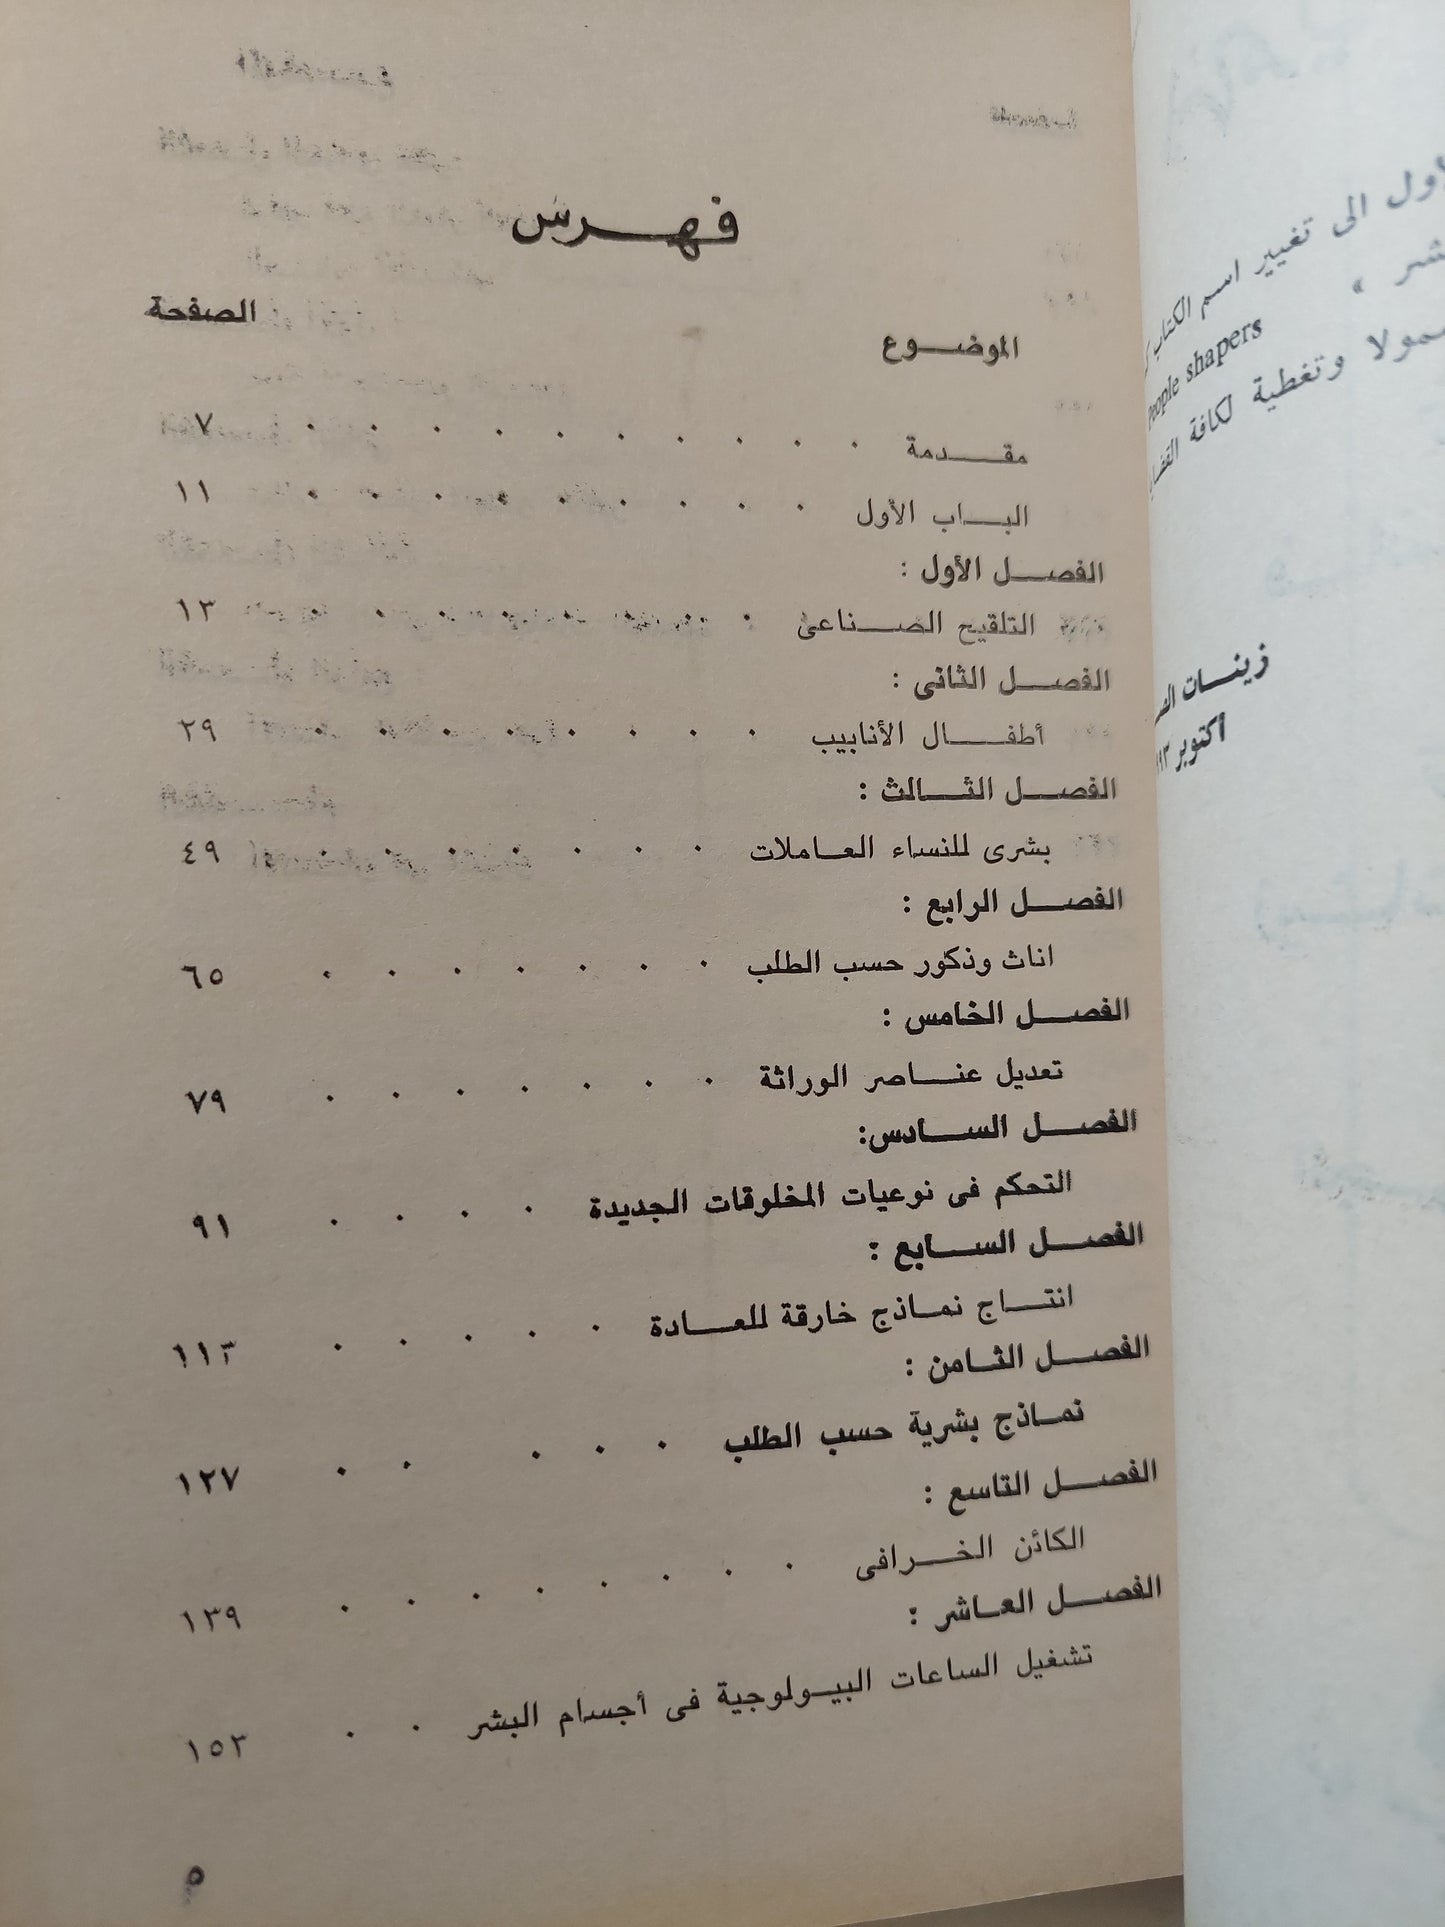 فهرس
الموضوع الصفحة
مقدمة . . . . . . . . . . ٧
الباب الأول . . . . . . . . . ١١
الفصل الأول :
التلقيح الصناعى . . . . . . . . ١٣
الفصل الثانى :
أطفال الأنابيب . . . . . . . . ٢٩
الفصل الثالث :
بشرى للنساء العاملات . . . . . . . ٤٩
الفصل الرابع :
اناث وذكور حسب الطلب . . . . . . . ٦٥
الفصل الخامس :
تعديل عناصر الوراثة . . . . . . . ٧٩
الفصل السادس:
التحكم فى نوعيات المخلوقات الجديدة . . . . ٩١
الفصل السابع :
انتاج نماذج خارقة للعادة . . . . . ١١٣
الفصل الثامن :
نماذج بشرية حسب الطلب . . . . . ١٢٧
الفصل التاسع :
الكائن الخرافى . . . . . . . . ١٣٩
الفصل العاشر :
تشغيل الساعات البيولوجية فى أجسام البشر . . ١٥٣
٥
الى تغيير اسم الكتاب
People shapers
وتغطية لكافة
زينات
أكتوبر